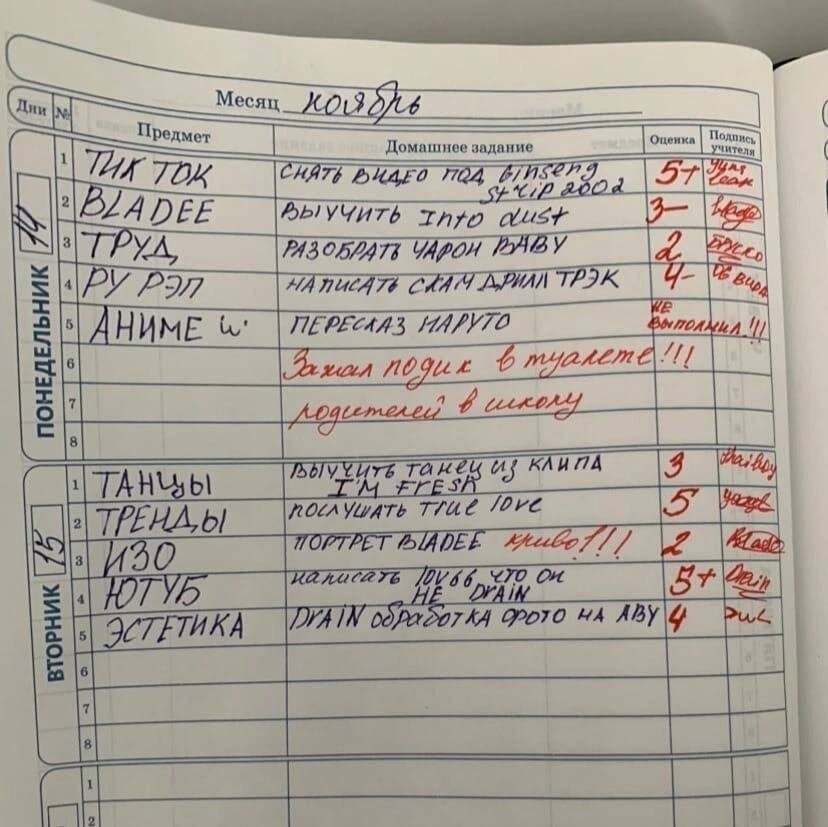 Месяц ноябрь
Дни № Предмет Домашнее задание Оценка Подпись учителя
ПОНЕДЕЛЬНИК 14
1 ТИК ТОК СНЯТЬ ВИДЕО ПОД Ginseng Strip 2002 5+ yung lean
2 BLADEE ВЫУЧИТЬ Into dust 3- blade
3 ТРУД РАЗОБРАТЬ ЧАРОН BABY 2
4 РУ РЭП НАПИСАТЬ СКАМ ДРИЛЛ ТРЭК 4-
5 АНИМЕ ПЕРЕСКАЗ НАРУТО НЕ ВЫПОЛНИЛ!!!
6 Зажал подик в туалете!!!
7 родителей в школу
8
ВТОРНИК 15
1 ТАНЦЫ ВЫУЧИТЬ танец из КЛИПА I'M FRESH 3 thaiboy
2 ТРЕНДЫ ПОСЛУШАТЬ true love 5
3 ИЗО ПОРТРЕТ BLADEE криво!!! 2 Blade
4 ЮТУБ написать lov66 что он НЕ DRAIN 5+ Drain
5 ЭСТЕТИКА DRAIN обработка фото на АВУ 4
6
7
8
1
2